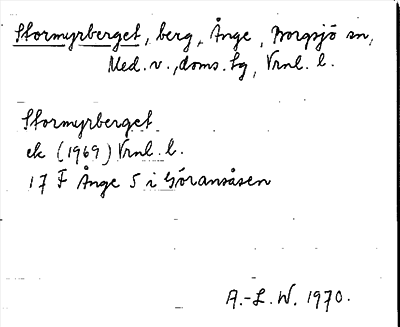 Stormyrberget, berg, Ånge, Borgsjö sn,
Med. v., doms. tg, Vrnl. l.
Stormyrberget
ek (1969) Vrnl. l.
17 F Ånge 5 i Göransåsen
A.-L. W. 1970.